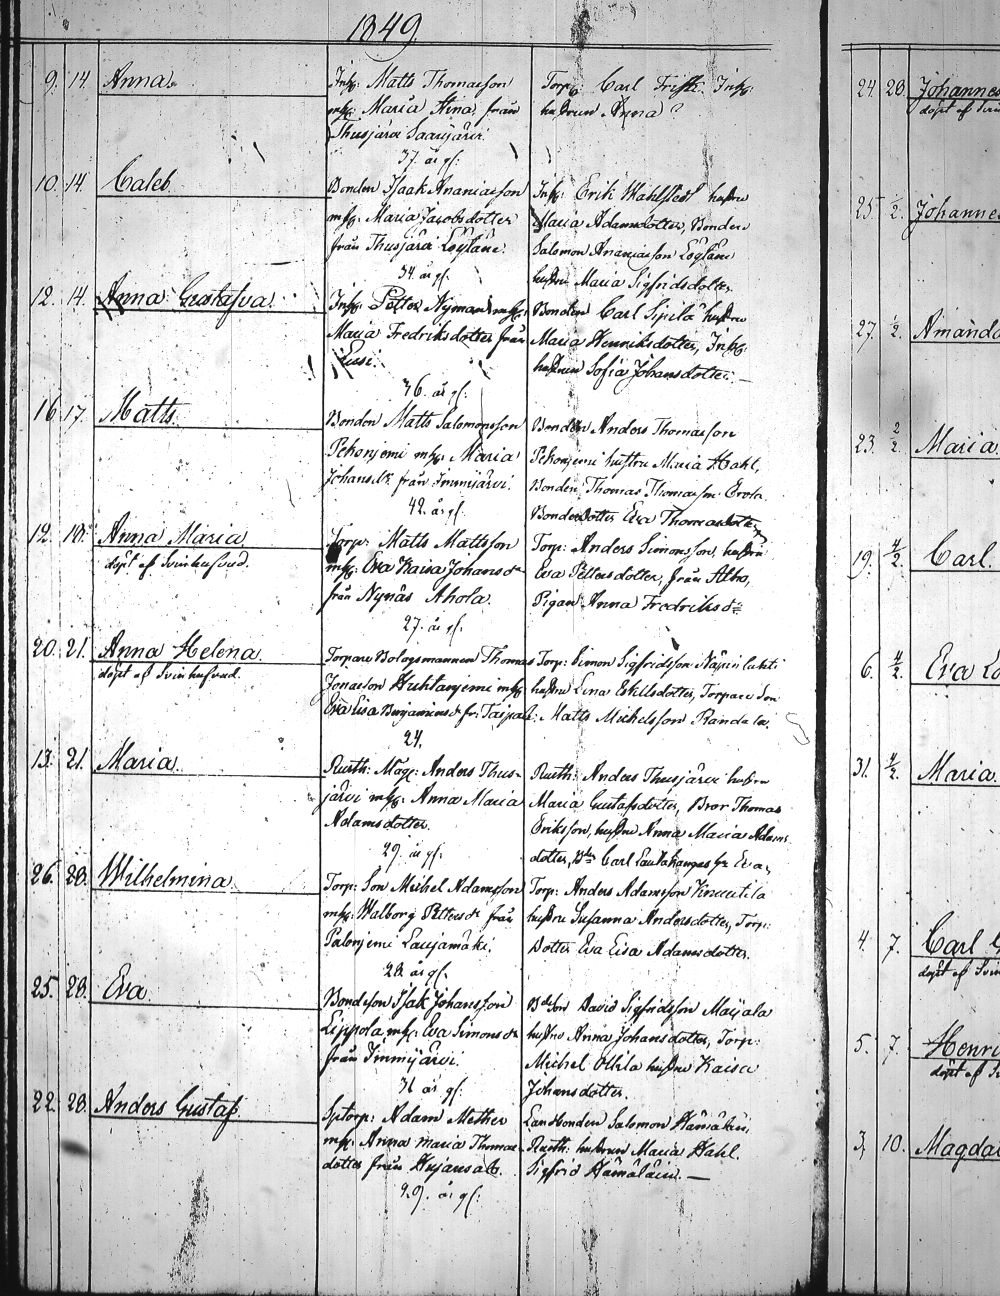 1849
9. 14. Anna.
Inh: Matts Thomasson
mh: Maria Stina från
Thusjärvi Saarijärvi.
37. år gl:
Torp. Carl Frisk. Inh:
hustrun Anna
10. 14. Caleb.
Bonden Isaak Ananiasson
mh: Maria Jacobsdotter
från Thusjärvi Löytäne.
34. år gl.
Inh: Erik Wahlsted hustru
Maria Adamsdotter, Bonden
Salomon Ananiasson Löytäne
hustru Maria Sigfridsdotter.
12. 14. Anna Gustafva.
Inh: Petter Nyman
Maria Fredriksdotter från
36. år gl.
Bonden Carl Sipilä hustru
Maria Henriksdotter, Inh:
hustrun Sofia Johansdotter.
16. 17. Matts.
Bonden Matts Salomonsson
Pekonjemi mh: Maria
från Immijärvi.
42. år gl.
Bonden Anders Thomasson
Pekonjemi hustru Maria Hahl,
Bonden Thomas Thomasson Erola
Bondedotter Eva Thomasdotter
12. 18. Anna Maria.
döpt af Svinhufvud.
Torp: Matts Mattsson
mh: Eva Kaisa Johansdr
från Nynäs Ahola.
27. år gl.
Torp: Anders Simonsson, hustru
Eva Pettersdotter, från Alho,
Pigan Anna Fredriksdr
20. 21. Anna Helena.
döpt af Svinhufvud.
Torpare Bolagsmannen Thomas
Jonasson Huhtanjemi mh:
Eva Lisa Benjaminsdr fr: Taipale
24.
Torp: Simon Sigfridsson
hustru Lena Eskilsdotter, Torpare Son
Matts Michelsson Randala.
13. 21. Maria.
Rusth: Måg: Anders Thus-
järvi mh: Anna Maria
Adamsdotter.
29. år gl.
Rusth: Anders Thusjärvi hustru
Maria Gustafsdotter, Bror Thomas
Eriksson, hustru Anna Maria Adams
dotter, Carl
26. 28. Wilhelmina.
Torp: Son Michel Adamsson
mh: Walborg Pettersdr från
Palonjemi Laujamäki.
28 år gl.
Torp: Anders Adamsson
hustru Susanna Andersdotter, Torp:
Dotter Eva Lisa Adamsdotter.
25. 28. Eva
Bondeson Isak Johansson
Lippola mh: Eva Simonsdr
från Immijärvi.
31 år gl.
Bdeson David Sigfridsson Maijala
hustru Anna Johansdotter, Torp:
Michel Ollila hustru Kaisa
Johansdotter.
22. 28. Anders Gustaf.
Sptorp: Adam Mether
mh: Anna Maria Thomas-
dotter från Hujansalo.
29. år gl:
Landbonden Salomon Hämäläin,
Rusth: hustrun Maria Hahl.
Sigfrid Hämäläin.
24. 28. Johannes
döpt af Svin
25. 1/2. Johannes
27. 1/2. Amanda
23. 2/2. Maria.
19. 4/2. Carl.
6. 4/2. Eva Lo
31. 4/2. Maria.
4. 7. Carl G
döpt af Svin
5. 7. Henri
döpt af S
3. 10. Magda